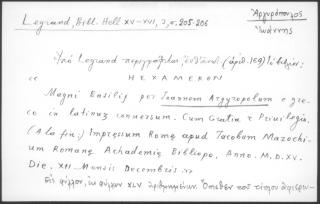 Legrand, Bibl. Hell. XV-XVI, 3, σ. 205-206
Ἀργυρόπουλος
Ἰωάννης
Ὑπὸ Legrand περιγράφεται, (ἀριθ. 159)
"
HEXAMERON
Magni Basilij per Joannem Argyropolum e gre-
co in latinum conversum. Cum Gratia et Priuilegio.
(A la fin:) Impressum Rome apud Jacobum Mazochi-
um Romane Achademie Bibliopo, Anno. M.D.XV.
Die. XII Mensis Decembris "
Εἰς φύλλον, ἐκ φύλλων XLV ἀριθμημένων. Ὄπισθεν τοῦ τίτλου ἀφιερω-